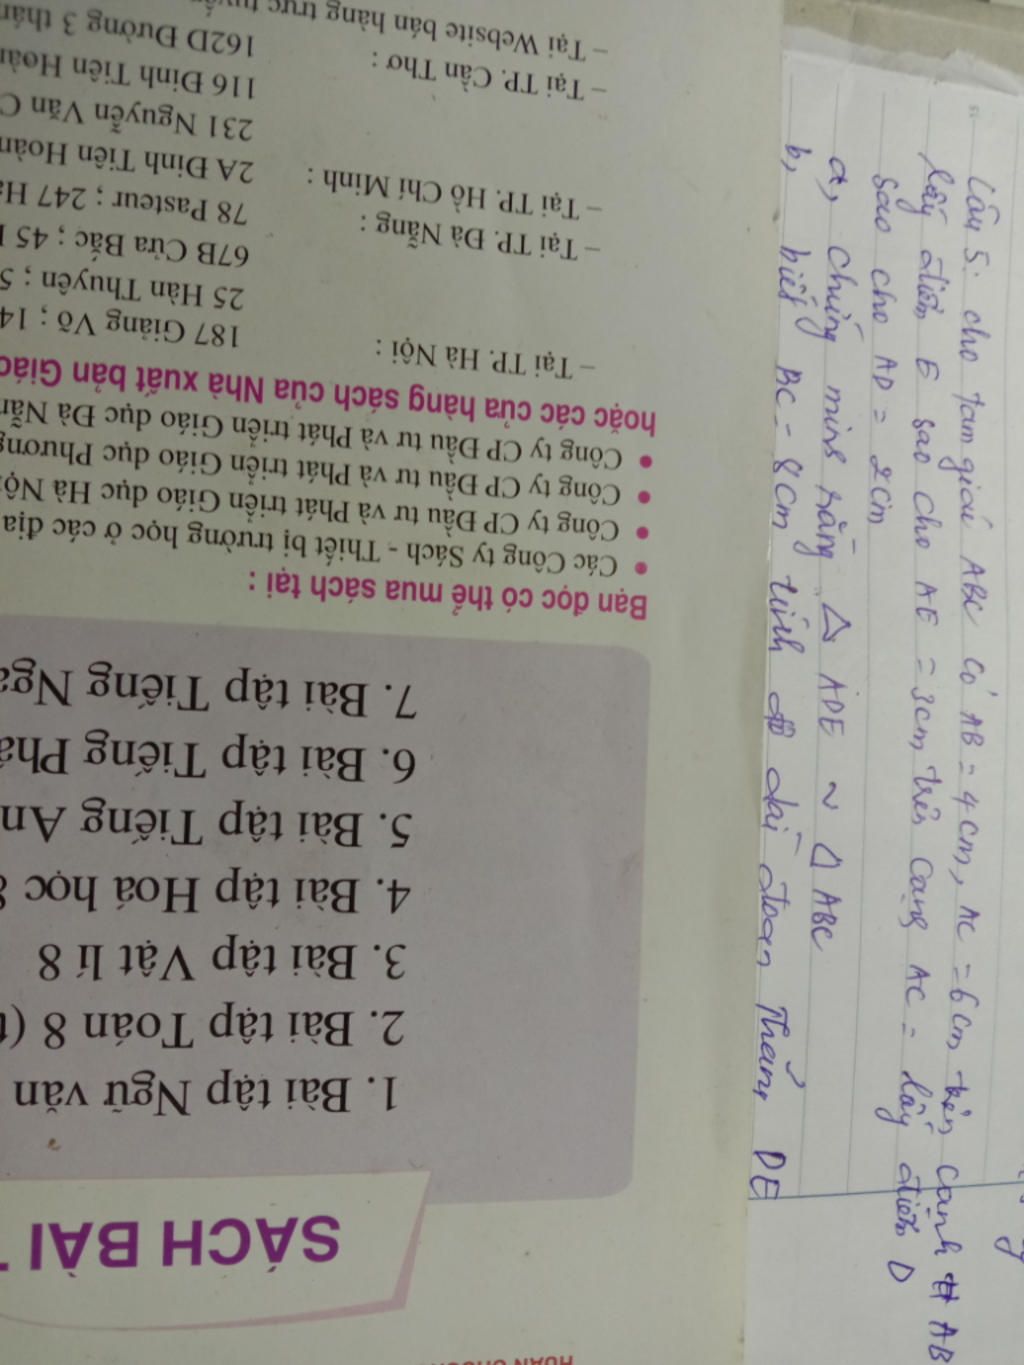 Câu 5: cho tam giác ABC có AB = 4cm, AC = 6cm trên cạnh AB
lấy điểm E sao cho AE = 3cm, trên cạng AC = lấy điểm D
sao cho AD = 2cm
a, chứng minh rằng △ ADE ~ △ ABC
b, biết BC = 8cm tính độ dài đoạn thẳng DE
SÁCH BÀI
1. Bài tập Ngữ văn
2. Bài tập Toán 8 (
3. Bài tập Vật lí 8
4. Bài tập Hoá học
5. Bài tập Tiếng An
6. Bài tập Tiếng Ph
7. Bài tập Tiếng Ng
Bạn đọc có thể mua sách tại :
• Các Công ty Sách - Thiết bị trường học ở các địa
• Công ty CP Đầu tư và Phát triển Giáo dục Hà Nộ
• Công ty CP Đầu tư và Phát triển Giáo dục Phương
• Công ty CP Đầu tư và Phát triển Giáo dục Đà Nẵn
hoặc các cửa hàng sách của Nhà xuất bản Giáo
– Tại TP. Hà Nội : 187 Giảng Võ ; 14
25 Hàn Thuyên ; 5
67B Cửa Bắc ; 45
– Tại TP. Đà Nẵng : 78 Pasteur ; 247 H
– Tại TP. Hồ Chí Minh : 2A Đinh Tiên Hoàn
231 Nguyễn Văn C
116 Đinh Tiên Hoàn
– Tại TP. Cần Thơ : 162D Đường 3 thán
– Tại Website bán hàng trực tuyến